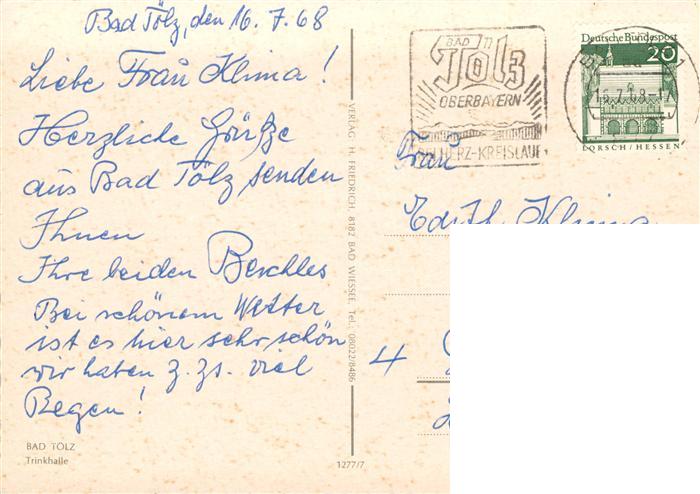 Bad Tölz, den 16.7.68
Liebe Frau Klima!
Herzliche Grüße
aus Bad Tölz senden
Ihnen
Ihre beiden Berchles
Bei schönem Wetter
ist es hier sehr schön
wir haben z. Zt. viel
Regen!
BAD TÖLZ
Trinkhalle
VERLAG H. FRIEDRICH, 8182 BAD WIESSEE, Tel.: 08022/8486
1277/7
BAD
Tölz
OBERBAYERN
HERZ-KREISLAUF
Deutsche Bundespost
20
LORSCH/HESSEN
16.7.68
Frau
Edith Klima
4